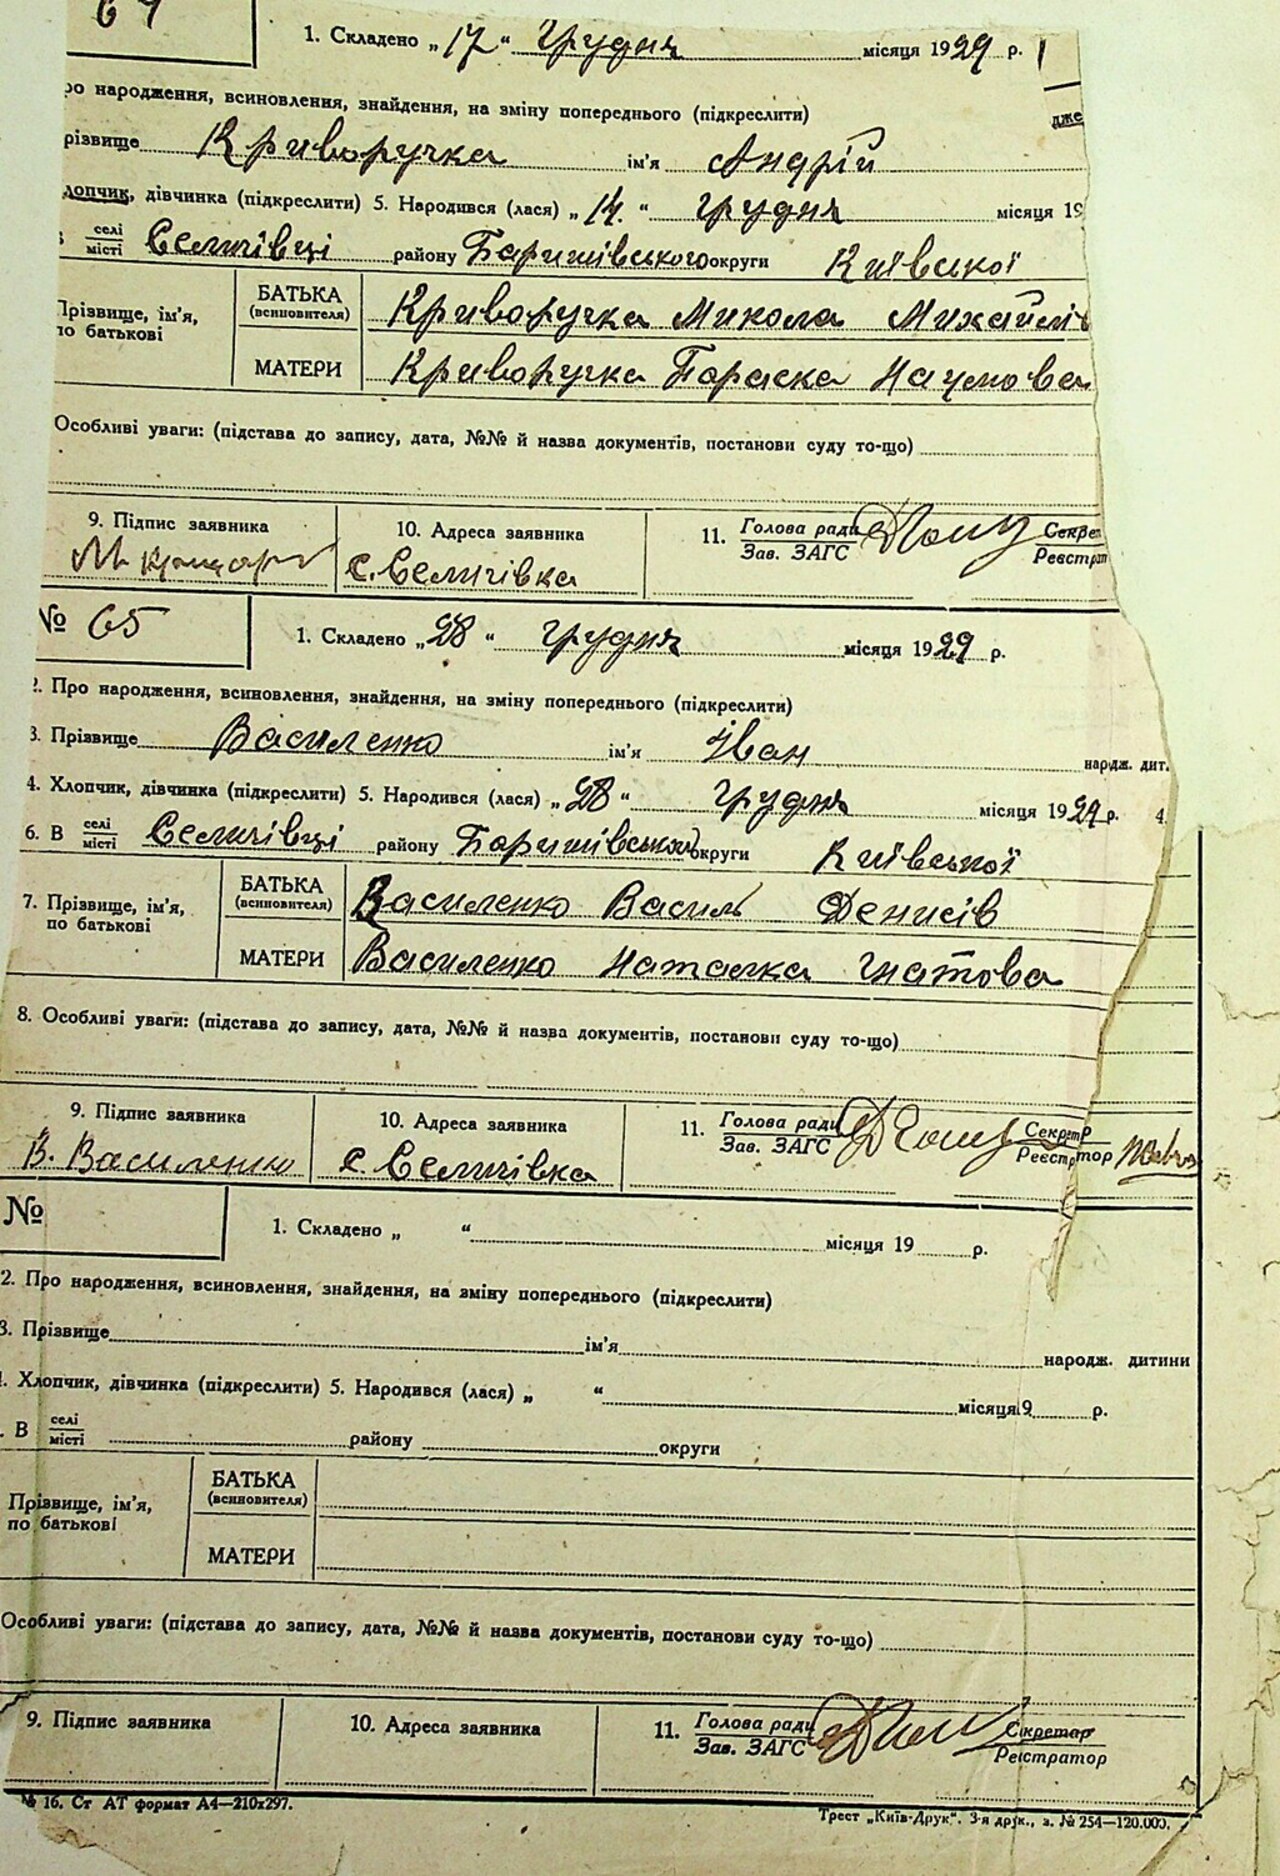 64
1. Складено „17“ грудня місяця 1929 р.
ро народження, всиновлення, знайдення, на зміну попереднього (підкреслити)
дже
різвище Криворучка ім'я Андрій
лопчик, дівчинка (підкреслити) 5. Народився (лася) „14.“ грудня місяця 19
селі
місті Селичівці району Баришівського округи Київської
Прізвище, ім'я, по батькові
БАТЬКА (всиновителя) Криворучка Микола Михайлів
МАТЕРИ Криворучка Параска Наумова
Особливі уваги: (підстава до запису, дата, №№ й назва документів, постанови суду то-що)
9. Підпис заявника
10. Адреса заявника
с. Селичівка
11. Голова ради
Зав. ЗАГС
Секре
Реєстрат
№ 65
1. Складено „28“ грудня місяця 1929 р.
2. Про народження, всиновлення, знайдення, на зміну попереднього (підкреслити)
3. Прізвище Василенко ім'я Іван народж. дит.
4. Хлопчик, дівчинка (підкреслити) 5. Народився (лася) „28“ грудня місяця 1929 р. 4
6. В селі
місті Селичівці району Баришівського округи Київської
7. Прізвище, ім'я, по батькові
БАТЬКА (всиновителя) Василенко Василь Денисів
МАТЕРИ Василенко Наталка Гнатова
8. Особливі уваги: (підстава до запису, дата, №№ й назва документів, постанови суду то-що)
9. Підпис заявника
В. Василенко
10. Адреса заявника
с. Селичівка
11. Голова ради
Зав. ЗАГС
Секретр
Реєстратор
№
1. Складено „ “ місяця 19 р.
2. Про народження, всиновлення, знайдення, на зміну попереднього (підкреслити)
3. Прізвище ім'я народж. дитини
. Хлопчик, дівчинка (підкреслити) 5. Народився (лася) „ “ місяця 19 р.
. В селі
місті району округи
Прізвище, ім'я, по батькові
БАТЬКА (всиновителя)
МАТЕРИ
Особливі уваги: (підстава до запису, дата, №№ й назва документів, постанови суду то-що)
9. Підпис заявника
10. Адреса заявника
11. Голова ради
Зав. ЗАГС
Секретар
Реєстратор
№ 16. Ст АТ формат А4—210х297.
Трест „Київ-Друк“. 3-я друк., з. № 254—120.000.